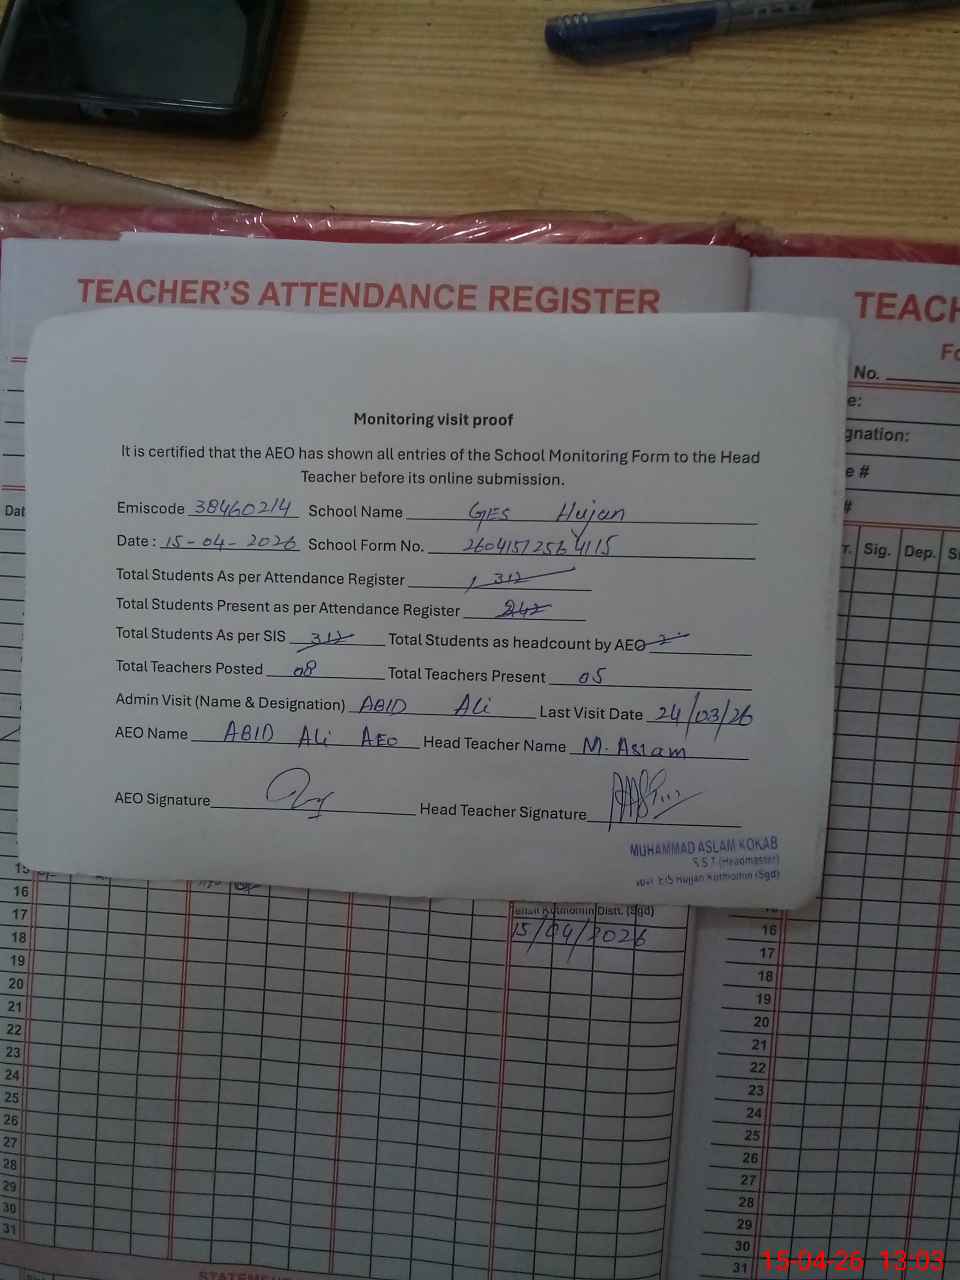 TEACHER'S ATTENDANCE REGISTER
TEACH
Fo
No.
e:
gnation:
e #
#
Dat
r. Sig. Dep. S
Monitoring visit proof
It is certified that the AEO has shown all entries of the School Monitoring Form to the Head
Teacher before its online submission.
Emiscode 38460214 School Name GES Hujan
Date : 15-04-2026 School Form No.
Total Students As per Attendance Register 312
Total Students Present as per Attendance Register 242
Total Students As per SIS 312 Total Students as headcount by AEO
Total Teachers Posted 08 Total Teachers Present 05
Admin Visit (Name & Designation) ABID Ali Last Visit Date 24/03/26
AEO Name ABID Ali AEO Head Teacher Name M. Aslam
AEO Signature Head Teacher Signature
MUHAMMAD ASLAM KOKAB
S.S.T (Headmaster)
Hujjan Kotmomin (Sgd)
Kotmomin Distt. (Sgd)
15/04/2026
15
16
17
18
19
20
21
22
23
24
25
26
27
28
29
30
31
16
17
18
19
20
21
22
23
24
25
26
27
28
29
30
31
STATEMEN
15-04-26 13:03